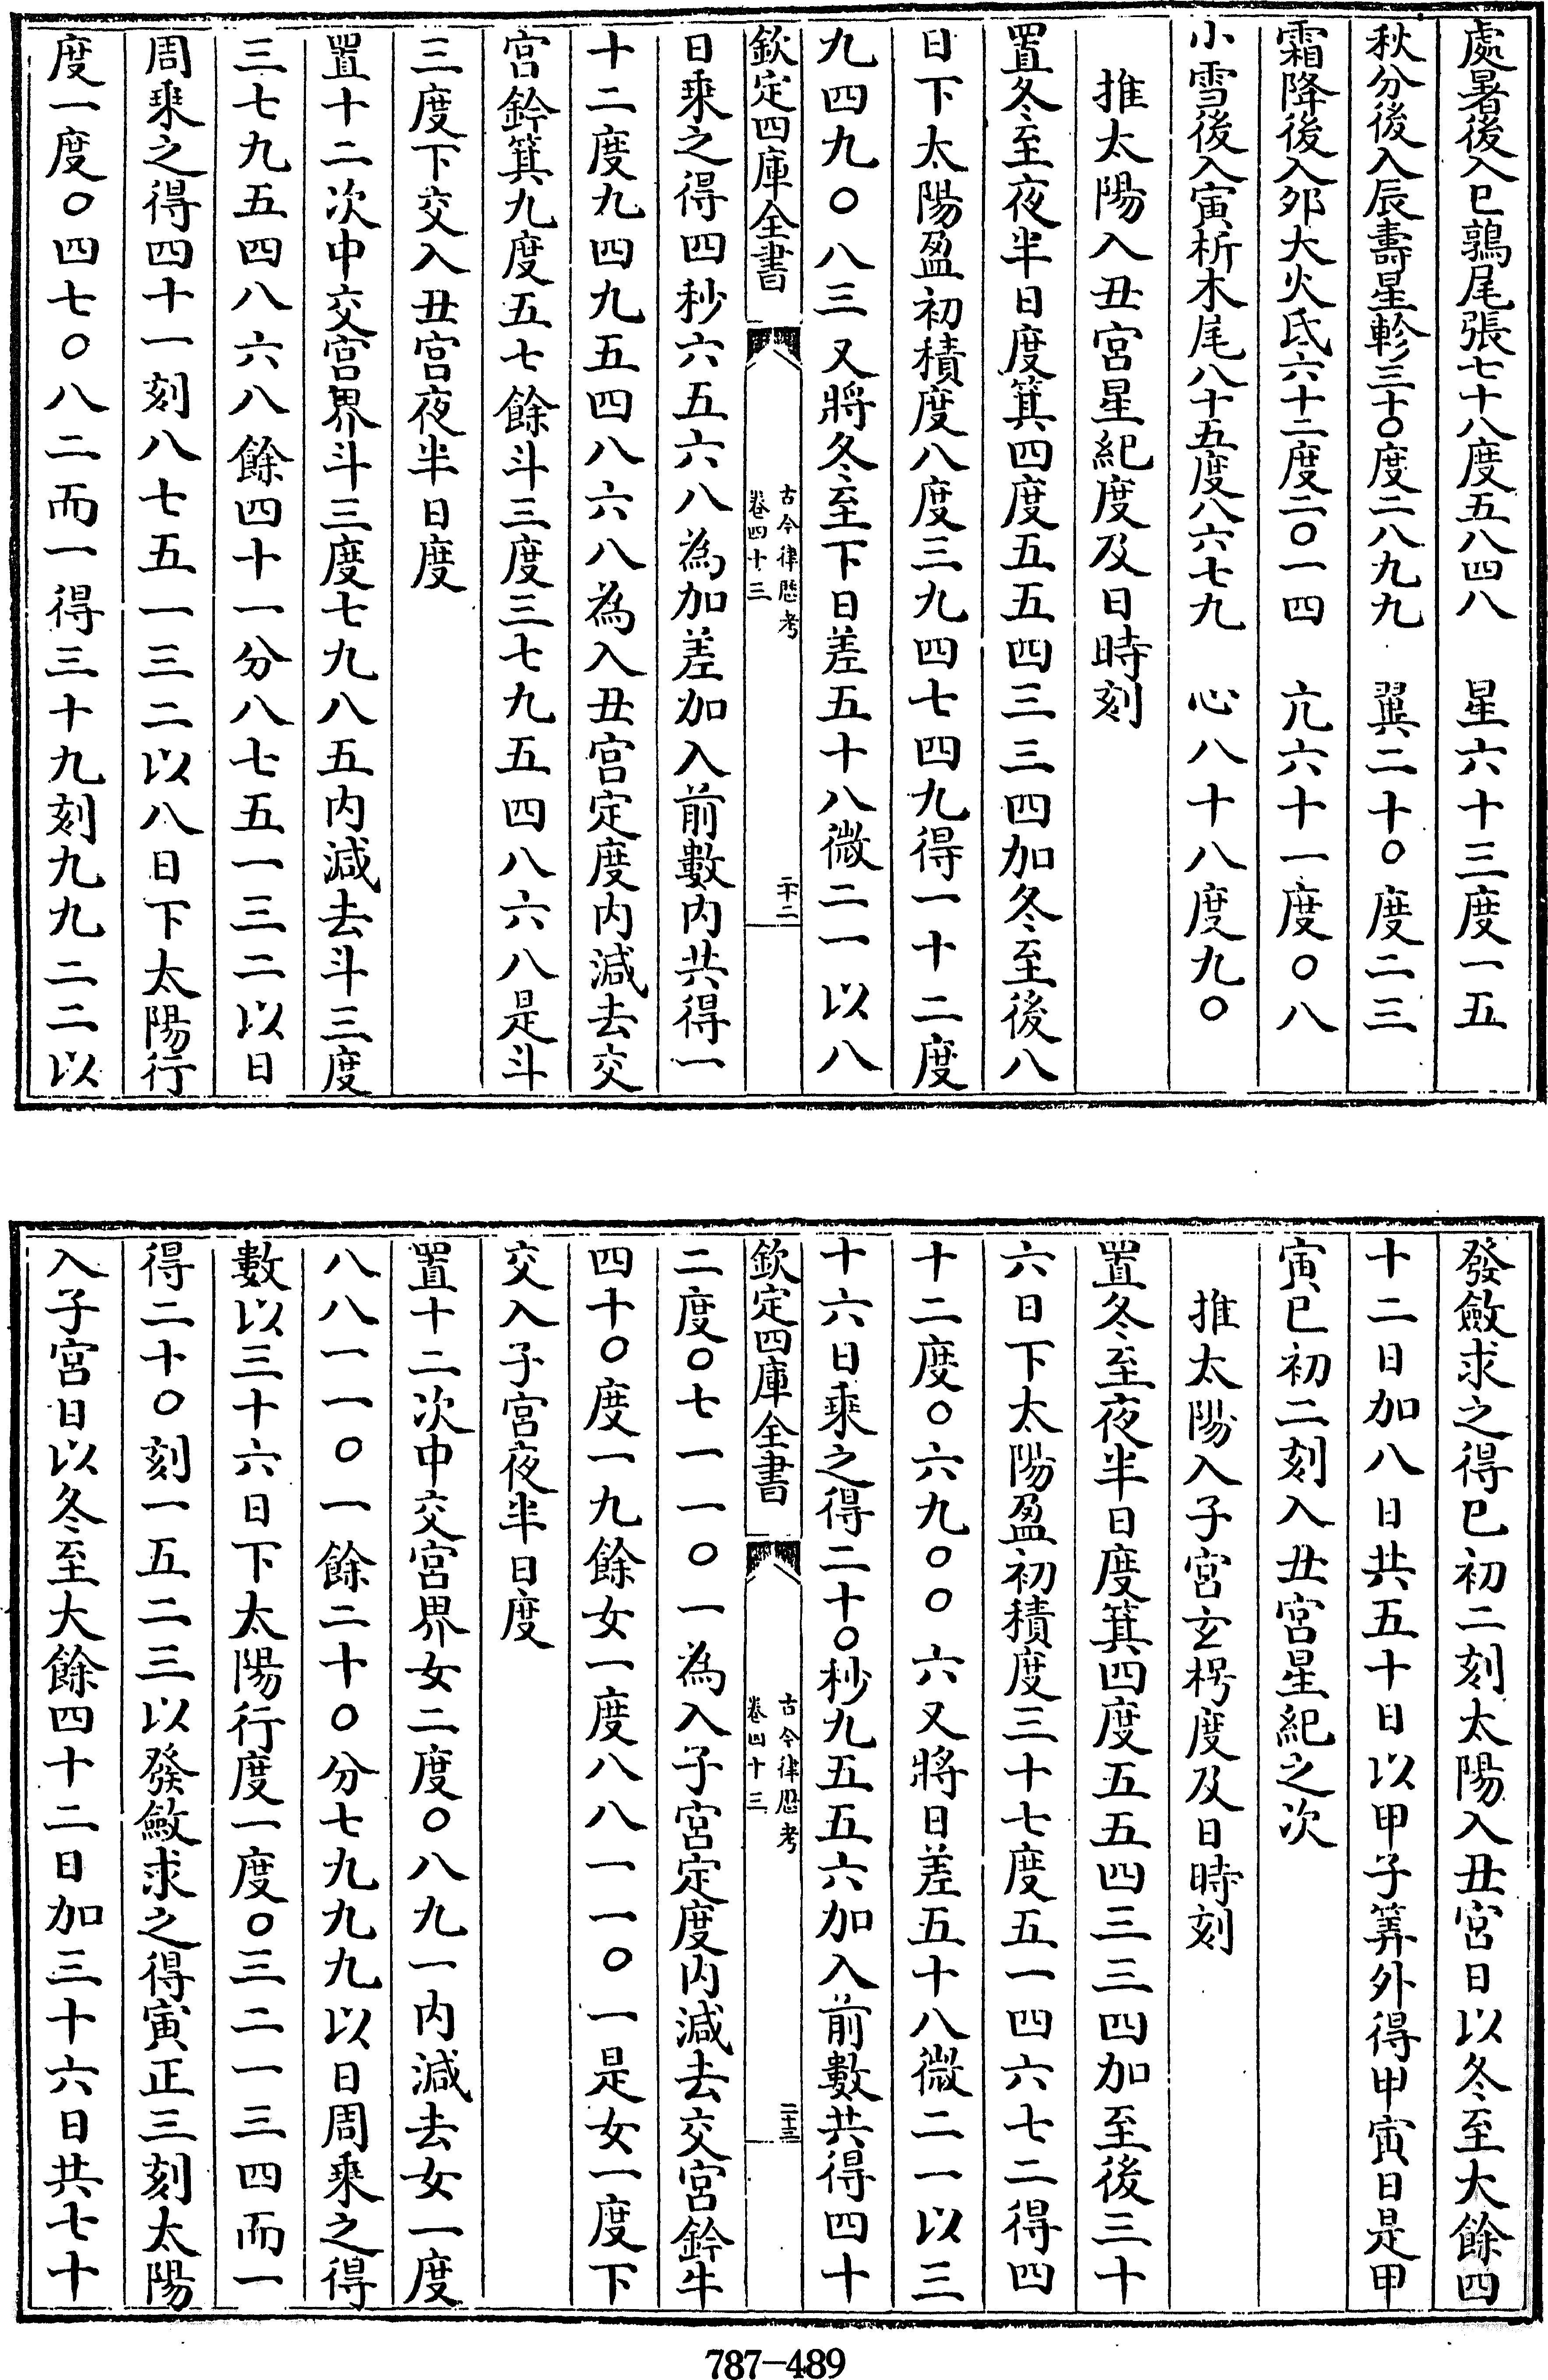 處暑後入巳鶉尾張七十八度五八四八　星六十三度一五
秋分後入辰壽星軫三十〇度二八九九　翼二十〇度二三
霜降後入夘大火氐六十二度二〇一四　亢六十一度〇八
小雪後入寅析木尾八十五度八六七九　心八十八度九〇
推太陽入丑宮星紀度及日時刻
置冬至夜半日度箕四度五五四三三四加冬至後八
日下太陽盈初積度八度三九四七四九得一十二度
九四九〇八三又將冬至下日差五十八微二一以八
欽定四庫全書
古今律厯考
卷四十三
二十二
日乘之得四秒六五六八為加差加入前數内共得一
十二度九四九五四八六八為入丑宮定度内減去交
宮鈐箕九度五七餘斗三度三七九五四八六八是斗
三度下交入丑宮夜半日度
置十二次中交宮界斗三度七九八五内減去斗三度
三七九五四八六八餘四十一分八七五一三二以日
周乘之得四十一刻八七五一三二以八日下太陽行
度一度〇四七〇八二而一得三十九刻九九二二以
發斂求之得巳初二刻太陽入丑宮日以冬至大餘四
十二日加八日共五十日以甲子筭外得甲寅日是甲
寅巳初二刻入丑宮星紀之次
推太陽入子宮玄枵度及日時刻
置冬至夜半日度箕四度五五四三三四加至後三十
六日下太陽盈初積度三十七度五一四六七二得四
十二度〇六九〇〇六又將日差五十八微二一以三
十六日乘之得二十〇秒九五五六加入前數共得四十
欽定四庫全書
古今律厯考
卷四十三
二十三
二度〇七一一〇一為入子宮定度内減去交宮鈐牛
四十〇度一九餘女一度八八一一〇一是女一度下
交入子宮夜半日度
置十二次中交宮界女二度〇八九一内減去女一度
八八一一〇一餘二十〇分七九九九以日周乘之得
數以三十六日下太陽行度一度〇三二一三四而一
得二十〇刻一五二三以發斂求之得寅正三刻太陽
入子宮日以冬至大餘四十二日加三十六日共七十
787-489